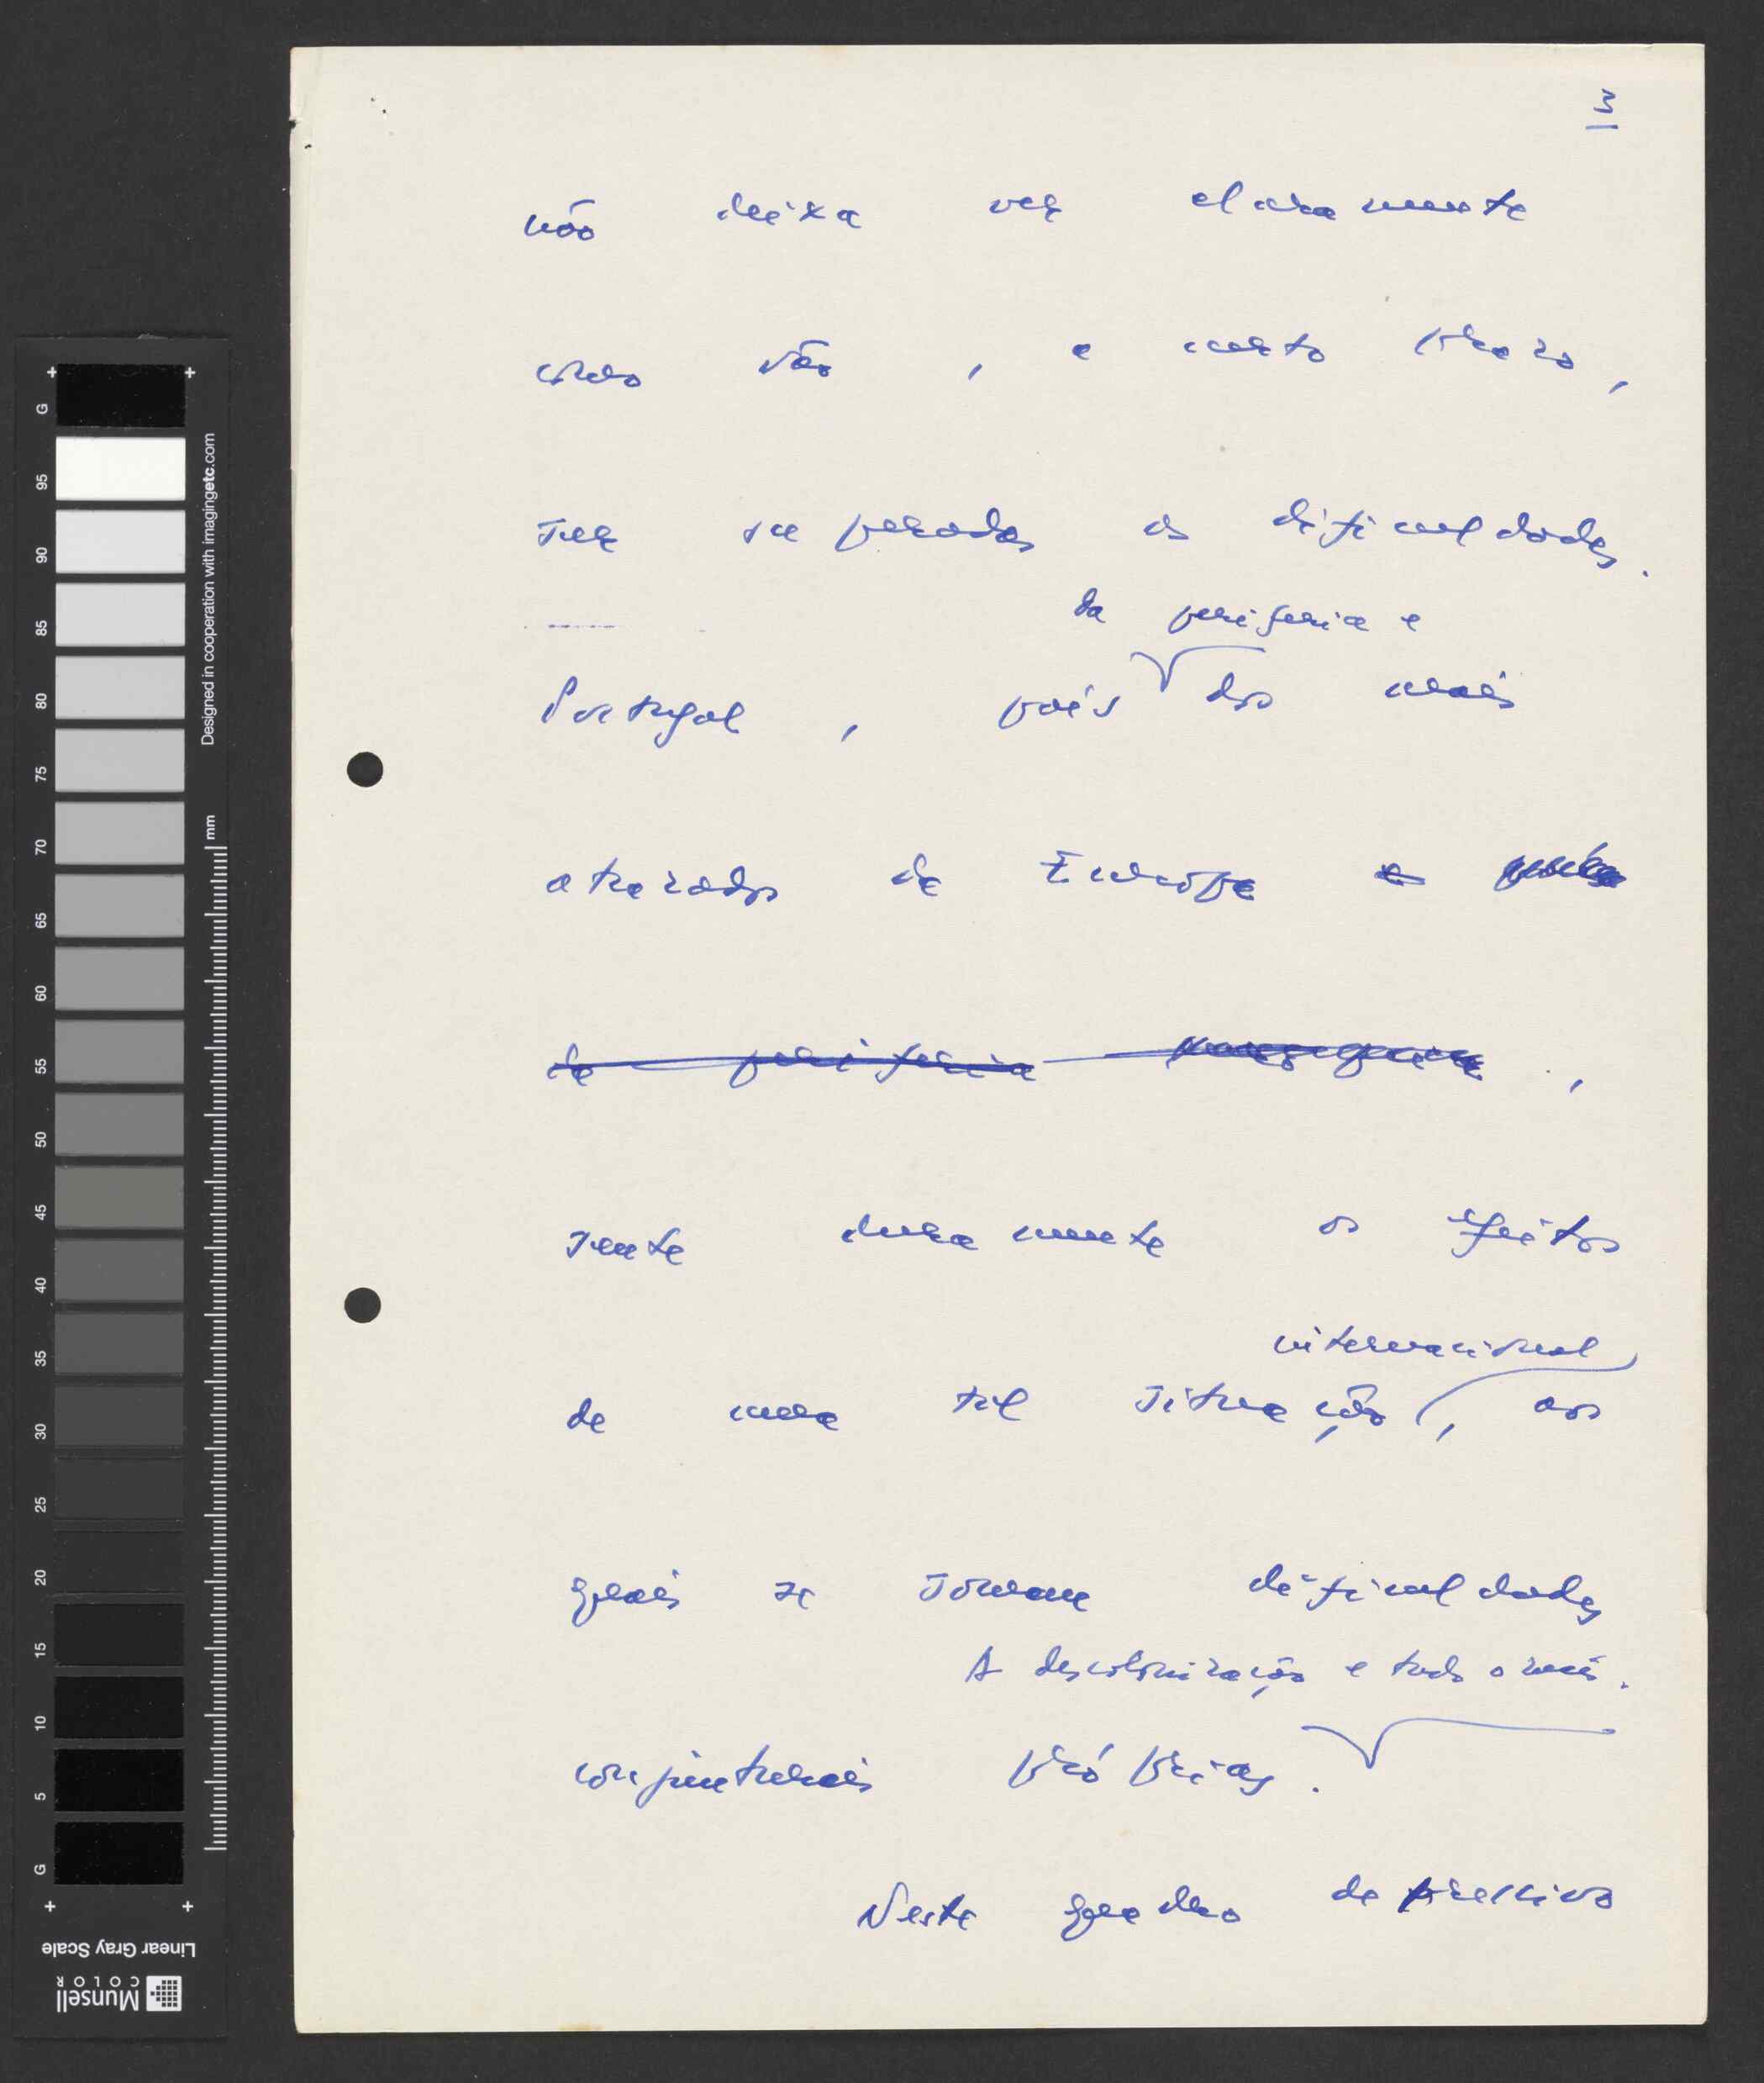 3
não deixa ver claramente
como vão, a curto prazo,
ser superadas as dificuldades.
da periferia e
Portugal, país dos mais
atrasados da Europa e
da periferia
,
sente duramente os efeitos
internacional
de uma tal situação, aos
quais se somam dificuldades
A descolonização e tudo o mais.
conjunturais próprias.
Neste quadro depressivo
G
95
90
85
80
75
70
65
60
55
50
45
40
35
30
25
20
15
10
5
G
Designed in cooperation with imagingetc.com
mm
Linear Gray Scale
Munsell
COLOR